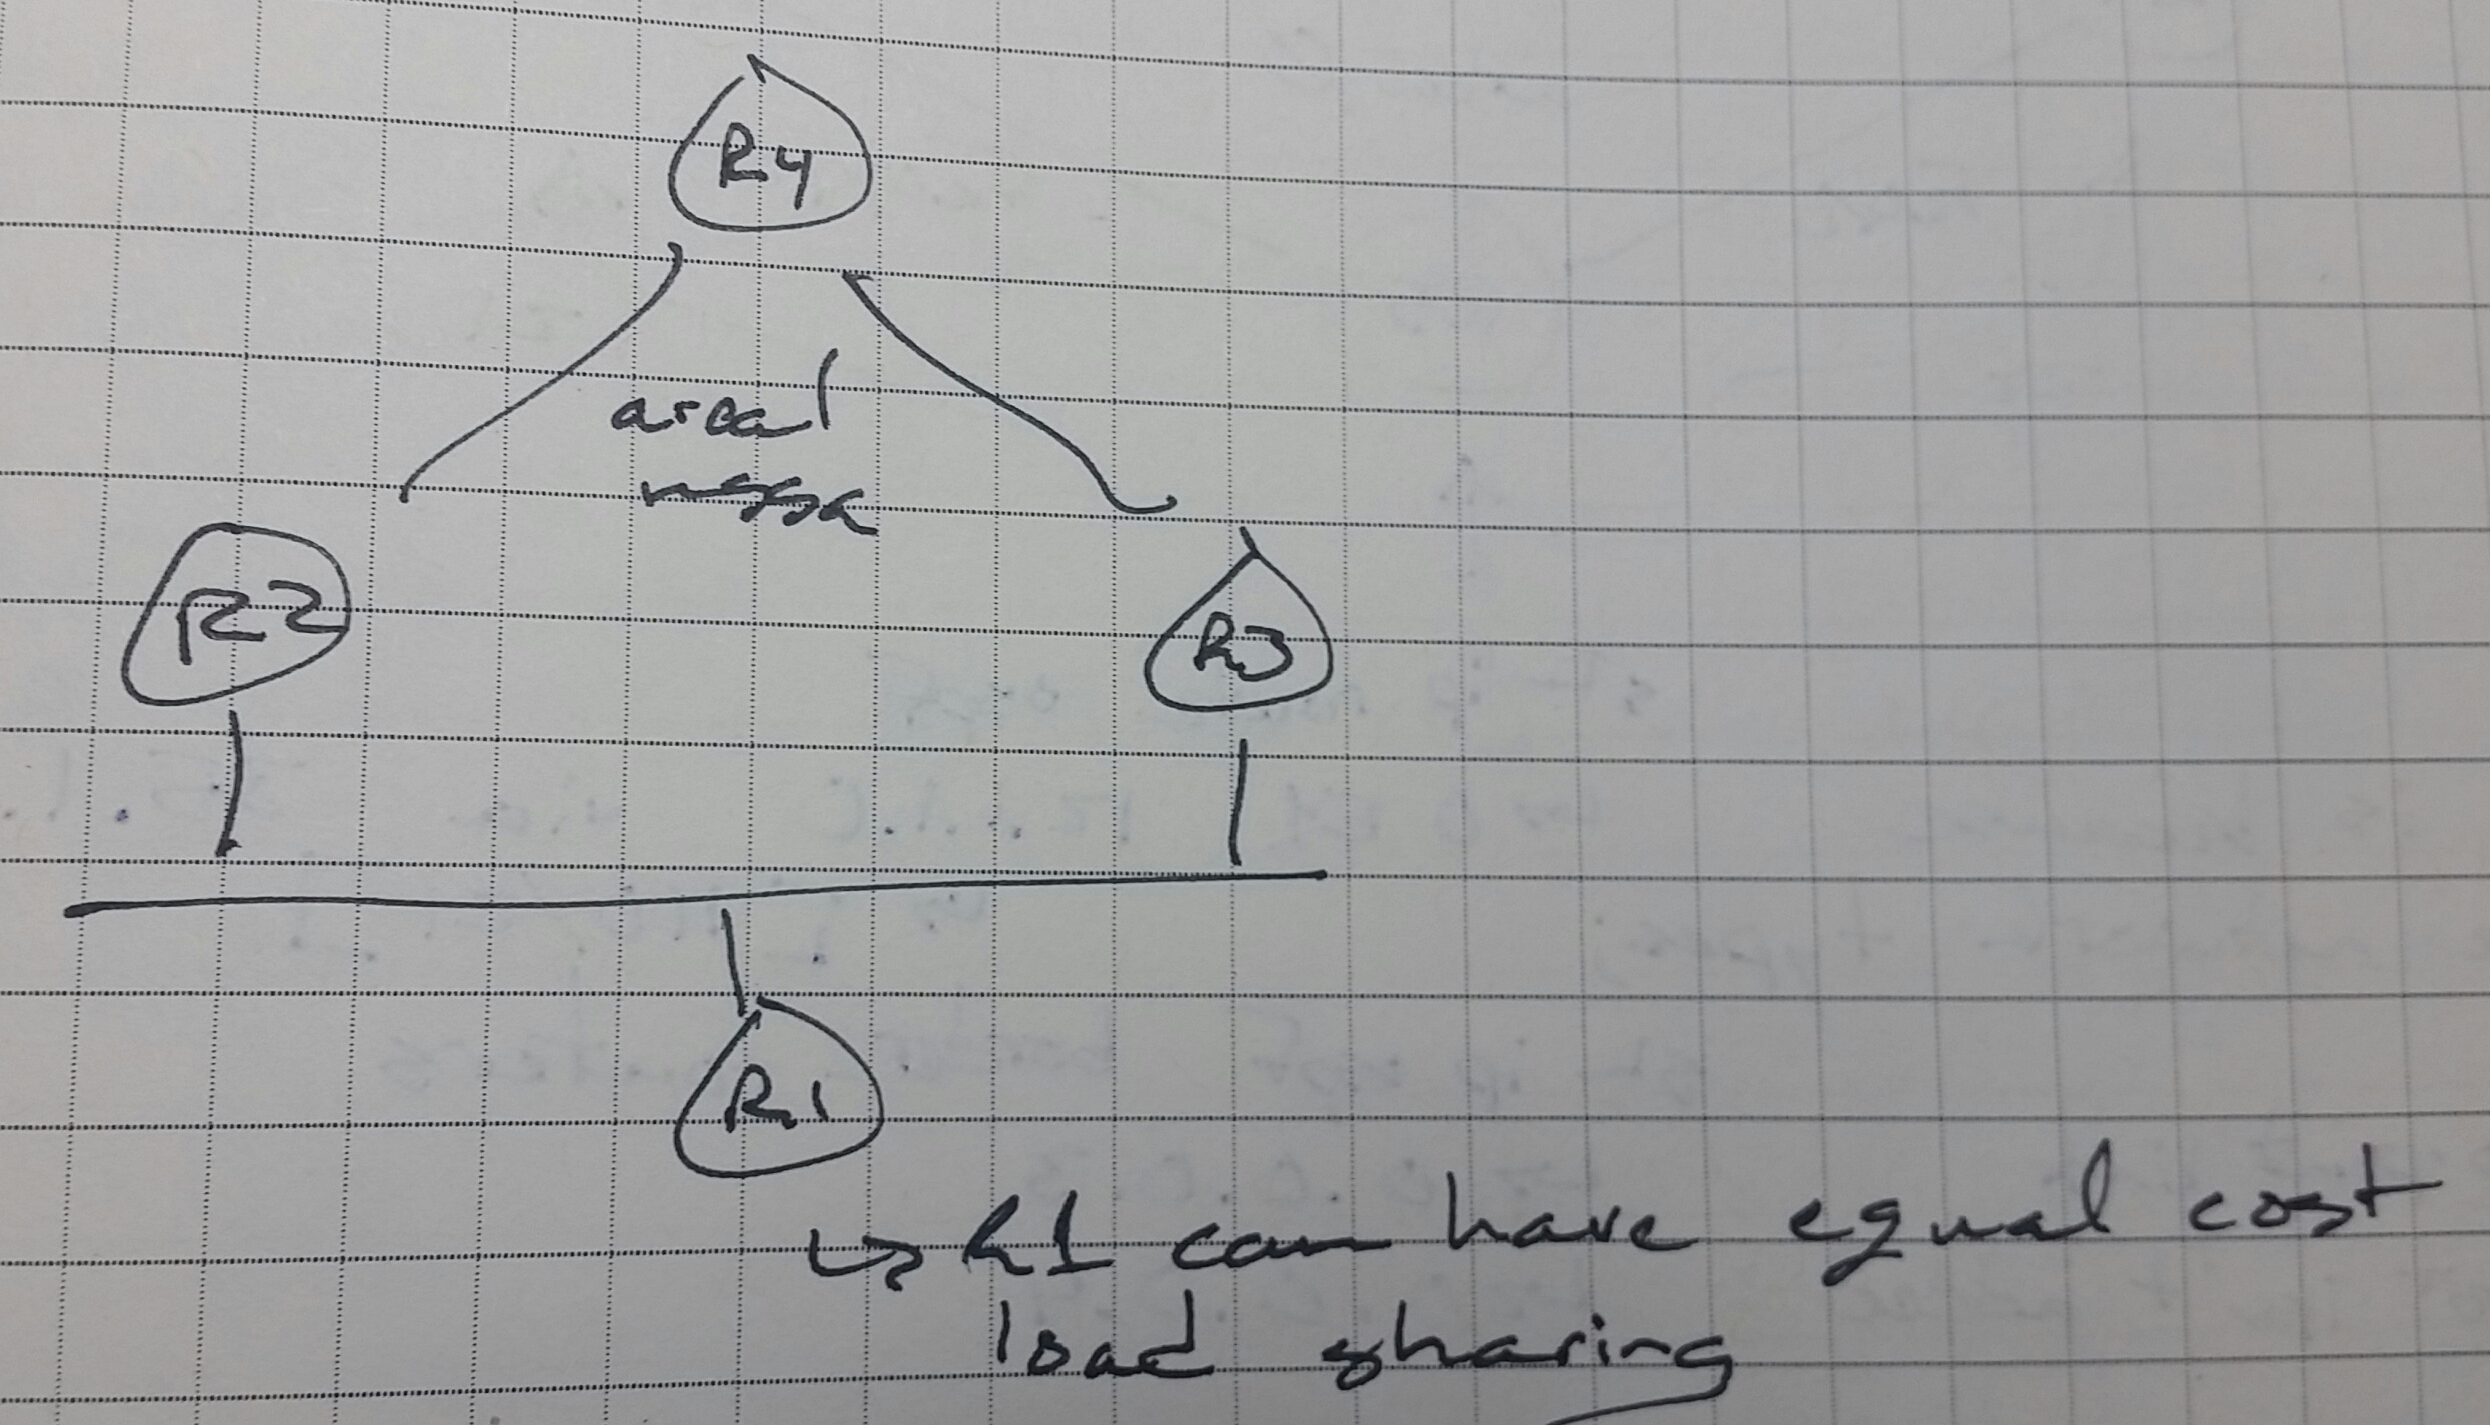 R4
area 1
nssa
R2
R3
R1
↳ R1 can have equal cost
load sharing